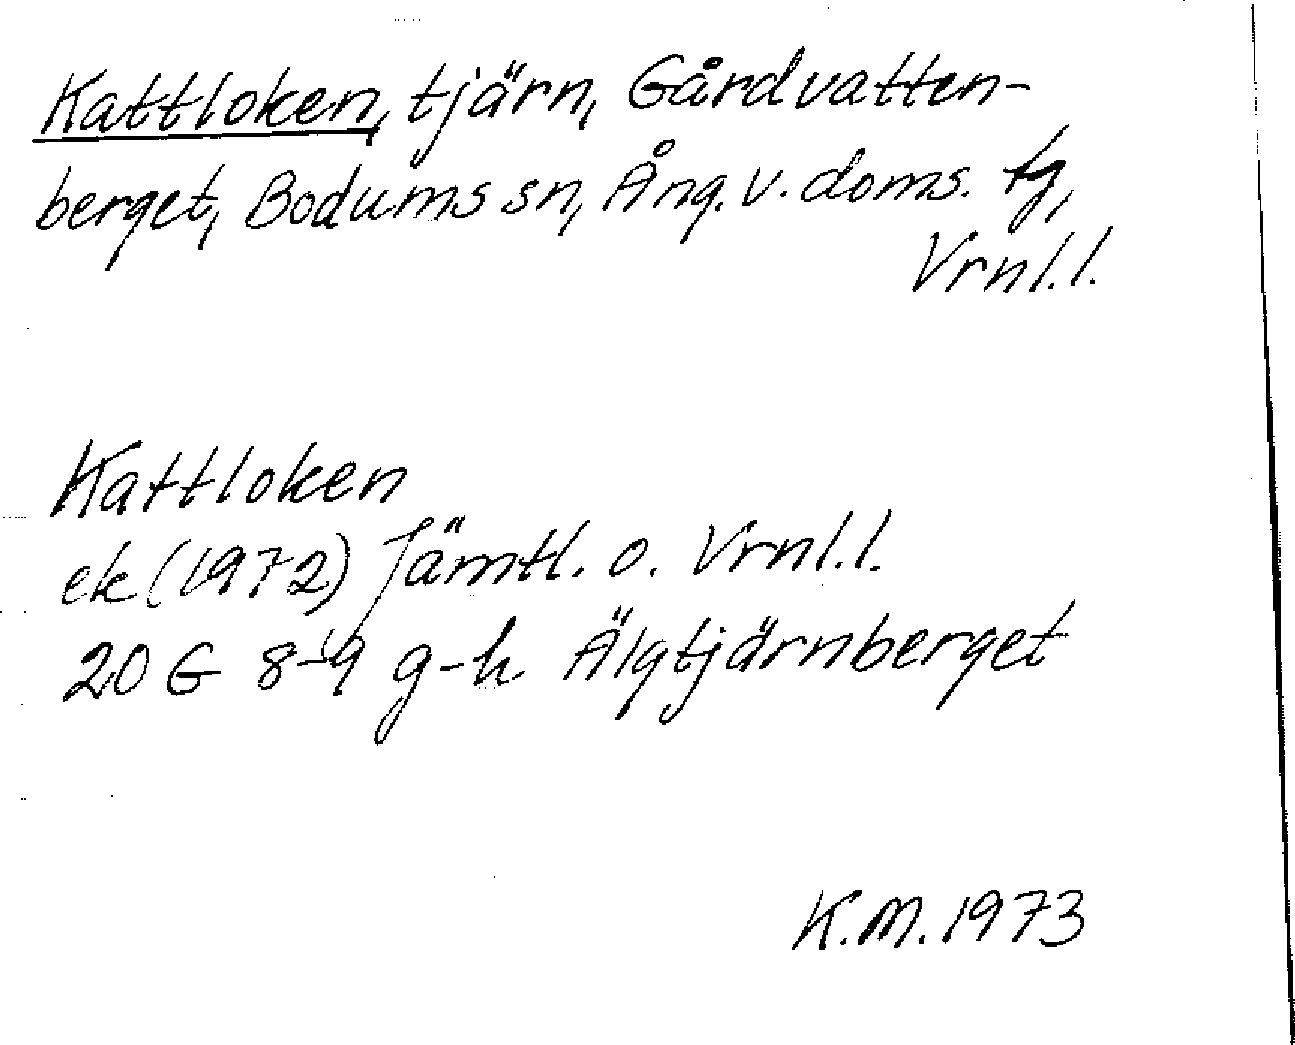 Kattloken, tjärn, Gårdvatten-
berget, Bodums sn, Ång. v. doms. tg,
Vrnl.l.
Kattloken
ek (1972) Jämtl. o. Vrnl.l.
20 G 8-9 g-h Älgtjärnberget
K.M. 1973